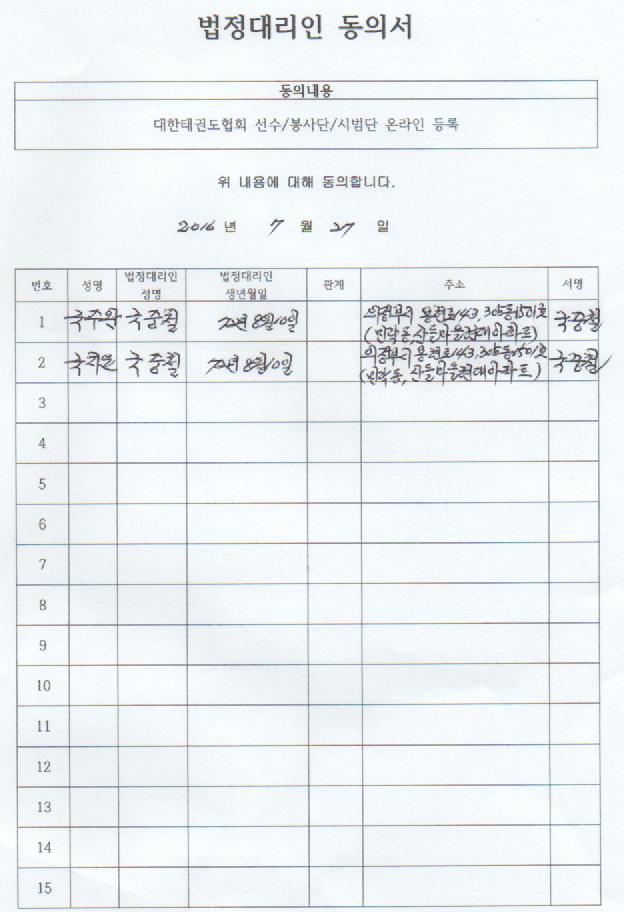 법정대리인 동의서
동의내용
대한태권도협회 선수/봉사단/시범단 온라인 등록
위 내용에 대해 동의합니다.
2016 년 7 월 27 일
번호 성명 법정대리인 성명 법정대리인 생년월일 관계 주소 서명
1 국주완 국중철 72년 8월10일 의정부시 용현로143, 305동1501호 국중철
(민락동, 산들마을현대아파트)
2 국중철 72년 8월10일 의정부시 용현로143, 305동1501호 국중철
(민락동, 산들마을현대아파트)
3
4
5
6
7
8
9
10
11
12
13
14
15